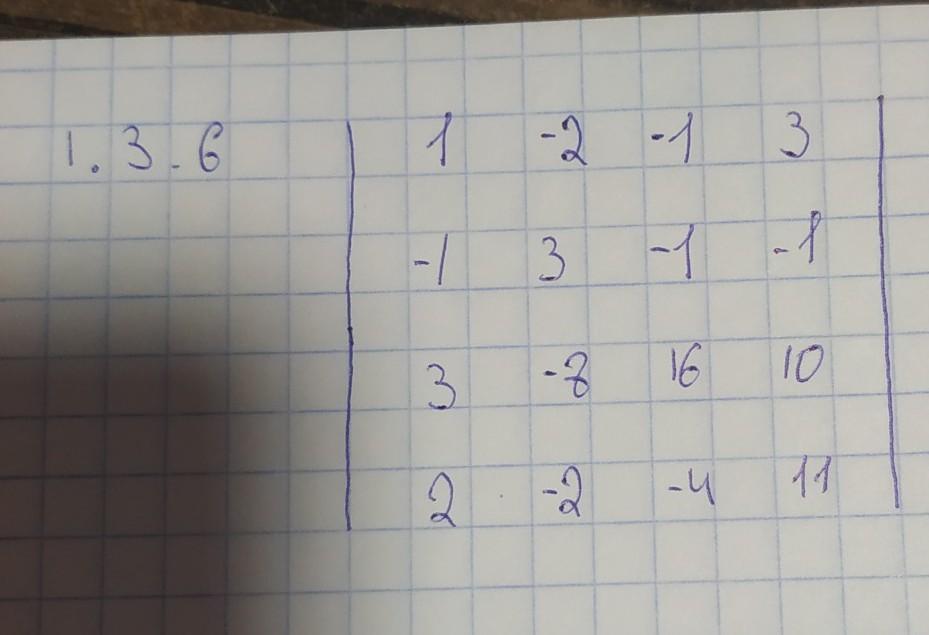 1.3.6 | 1 -2 -1 3 |
| -1 3 -1 -1 |
| 3 -8 16 10 |
| 2 -2 -4 11 |